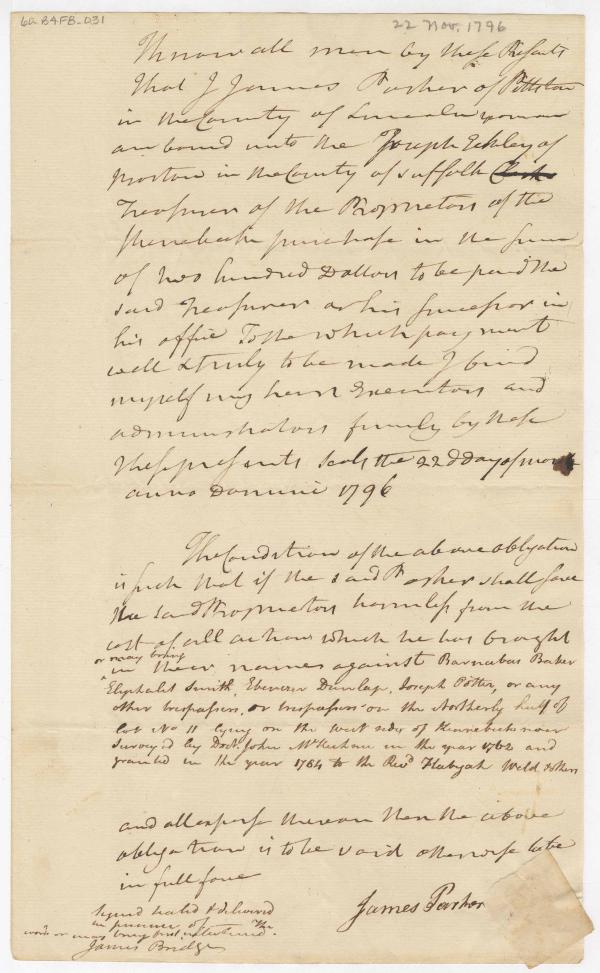 6a B4FB-031
22 Nov. 1796
Know all men by these Presents
that I James Parker of Pittston
in the County of Lincoln yeoman
am bound unto the Joseph Eckley of
Boston in the County of Suffolk Clerk
Treasurer of the Proprietors of the
Kennebeck purchase in the sum
of two hundred Dollars to be paid the
said Treasurer or his successor in
his office To the which payment
well & truly to be made I bind
myself my heirs Executors and
administrators firmly by these
these presents seal the 22d day of
anno Domini 1796
The Condition of the above obligation
is such that if the said Parker shall save
the said Proprietors harmless from the
cost of all actions which he has brought
or may bring
in their names against Barnabas Baker
Eliphalet Smith, Ebenezer Dunlap, Joseph Potter, or any
other trespasser, or trespassers on the Northerly half of
Lot No 11 lying on the west side of Kennebeck river
survey'd by Doct. John McKechnie in the year 1762 and
granted in the year 1764 to the Revd. Habijah Weld & others
and all expense thereon then the above
obligation is to be void otherwise to be
in full force
James Parker
Signed sealed & delivered
in presence of The
words or may bring first interlined.
James Bridge